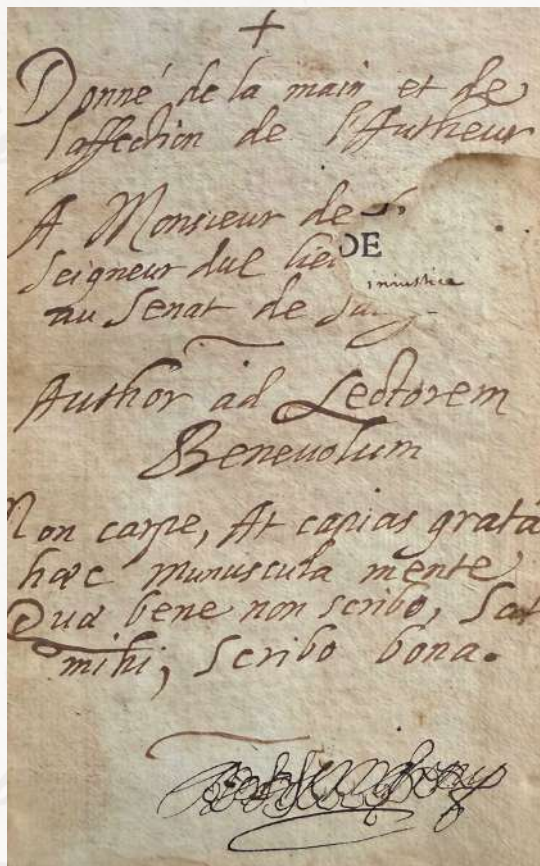 +
Donné de la main et de
l'affection de l'Autheur
A Monsieur de
Seigneur dud lieu
DE
iniustice
au Senat de
Author ad Lectorem
Benevolum
Non carpe, At capias grata
hæc munuscula mente
Quæ bene non scribo, Sat
mihi, Scribo bona.